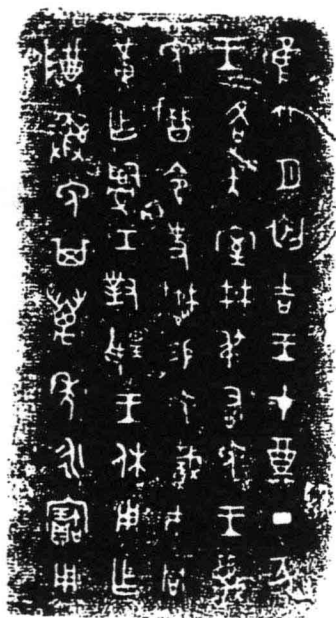 隹六月初吉王才奠丁亥
王各大室井弔右免王蔑
免曆令史懋易免載市冋
黃乍司工對揚王休用乍
尊彝免其萬年永寶用